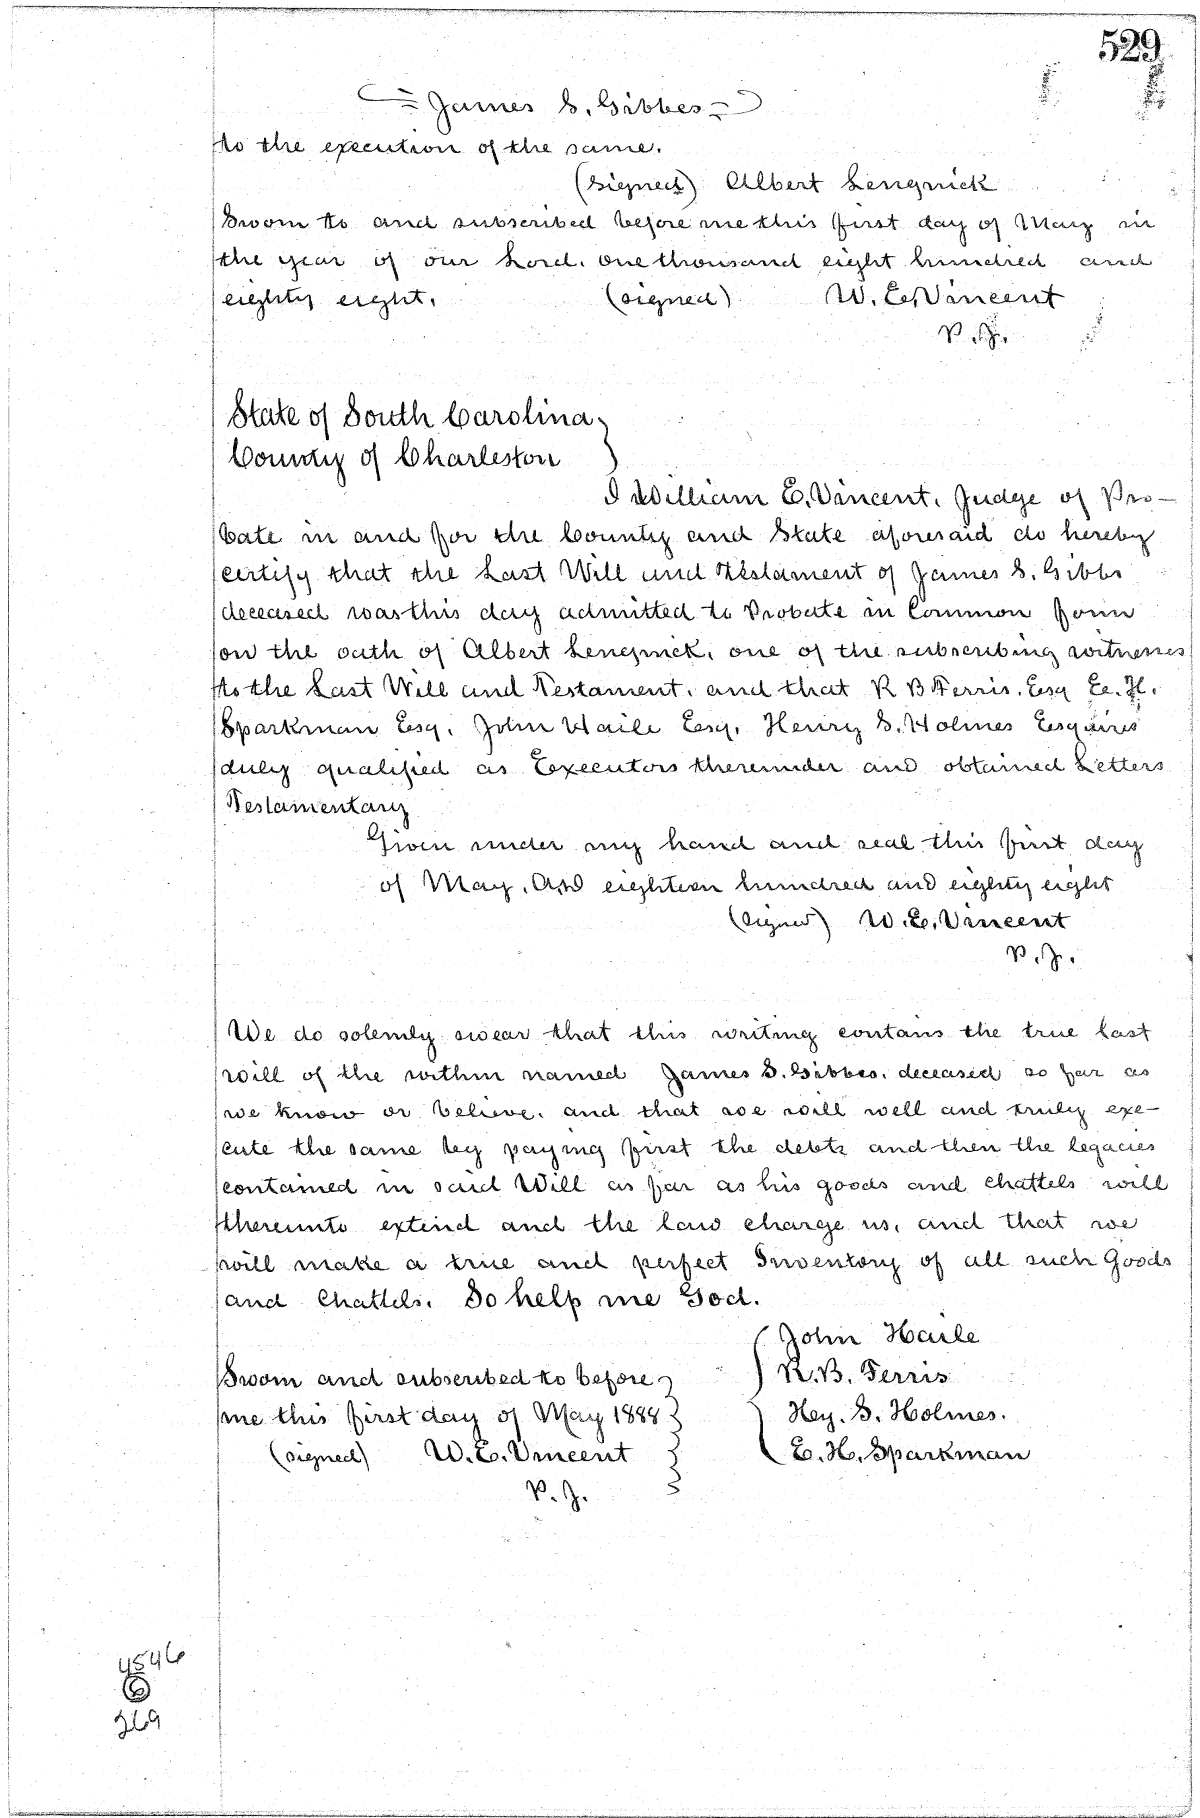 529
James S. Gibbes
to the execution of the same.
(signed) Albert Lengnick
Sworn to and subscribed before me this first day of May in
the year of our Lord. one thousand eight hundred and
eighty eight. (signed) W. E. Vincent
P. J.
State of South Carolina,
County of Charleston
I William E. Vincent, Judge of Pro-
bate in and for the County and State aforesaid do hereby
certify that the Last Will and Testament of James S. Gibbs
deceased was this day admitted to Probate in Common form
on the oath of Albert Lengnick, one of the subscribing witnesses
to the Last Will and Testament. and that R B Ferris. Esq E. H.
Sparkman Esq. John Haile Esq. Henry S. Holmes Esquires
duly qualified as Executors thereunder and obtained Letters
Testamentary
Given under my hand and seal this first day
of May. AD eighteen hundred and eighty eight
(signed) W. E. Vincent
P. J.
We do solemly swear that this writing contans the true last
will of the within named James S. Gibbes. deceased so far as
we know or believe. and that we will well and truly exe-
cute the same by paying first the debts and then the legacies
contained in said Will as far as his goods and chattels will
thereunto extend and the law charge us, and that we
will make a true and perfect Inventory of all such Goods
and Chattels. So help me God.
John Haile
Sworn and subscribed to before R. B. Ferris
me this first day of May 1888 Hey. S. Holmes.
(signed) W. E. Vincent E. H. Sparkman
P. J.
4546
6
269